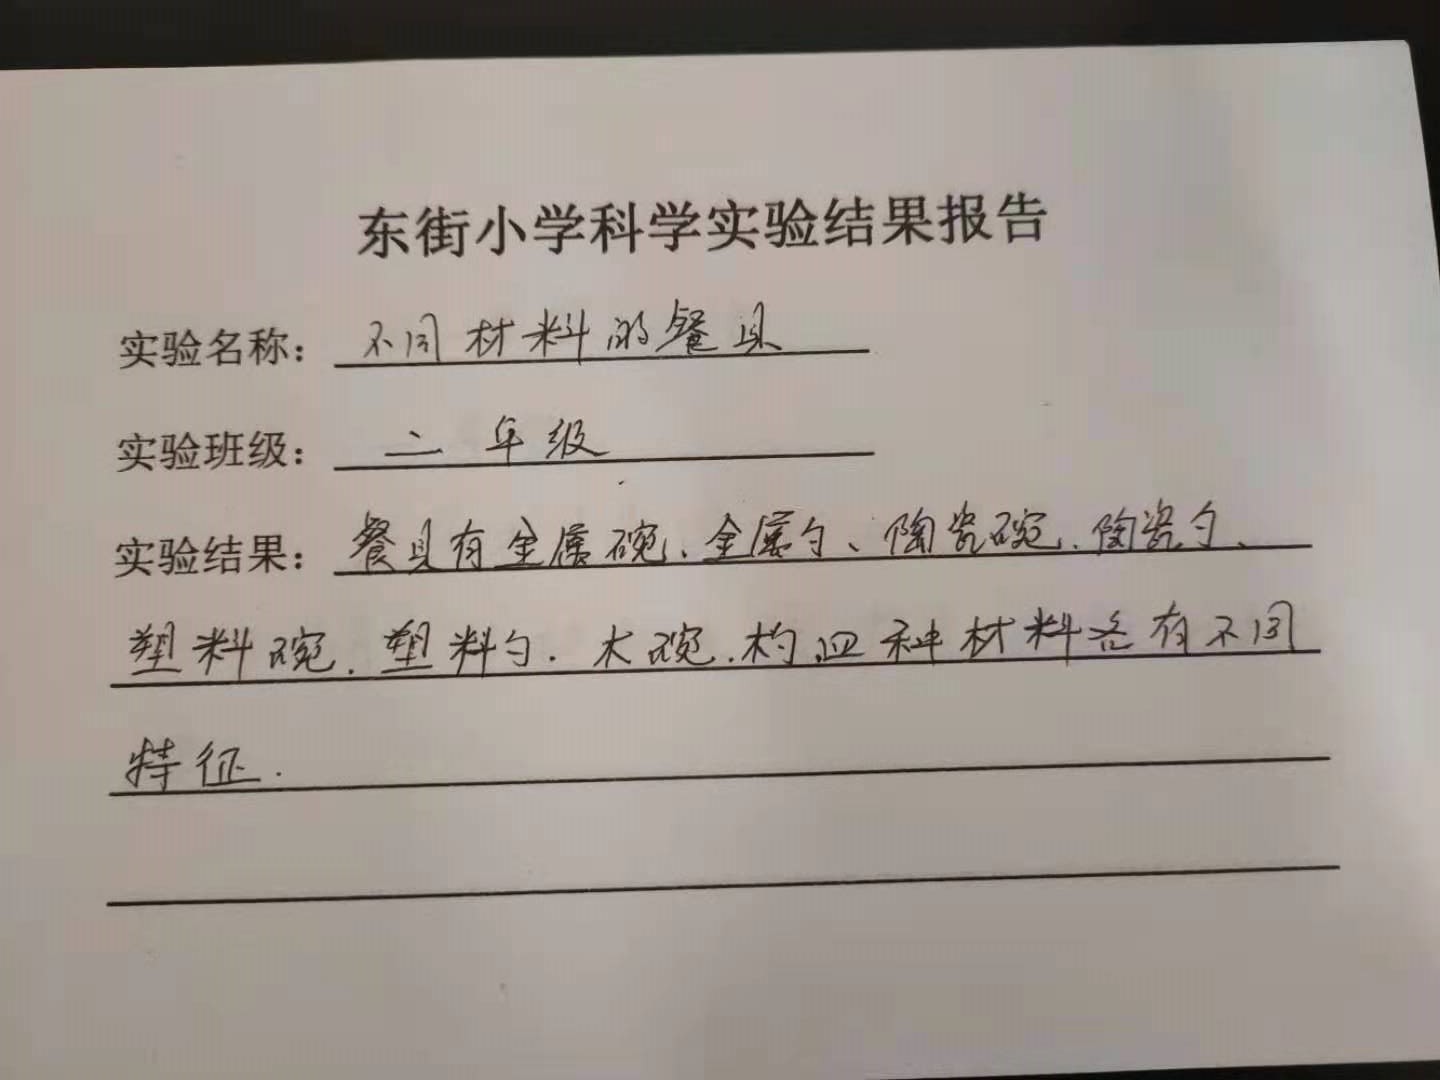 东街小学科学实验结果报告
实验名称：不同材料的餐具
实验班级：二年级
实验结果：餐具有金属碗、金属勺、陶瓷碗、陶瓷勺、
塑料碗、塑料勺、木碗、杓四种材料各有不同
特征.